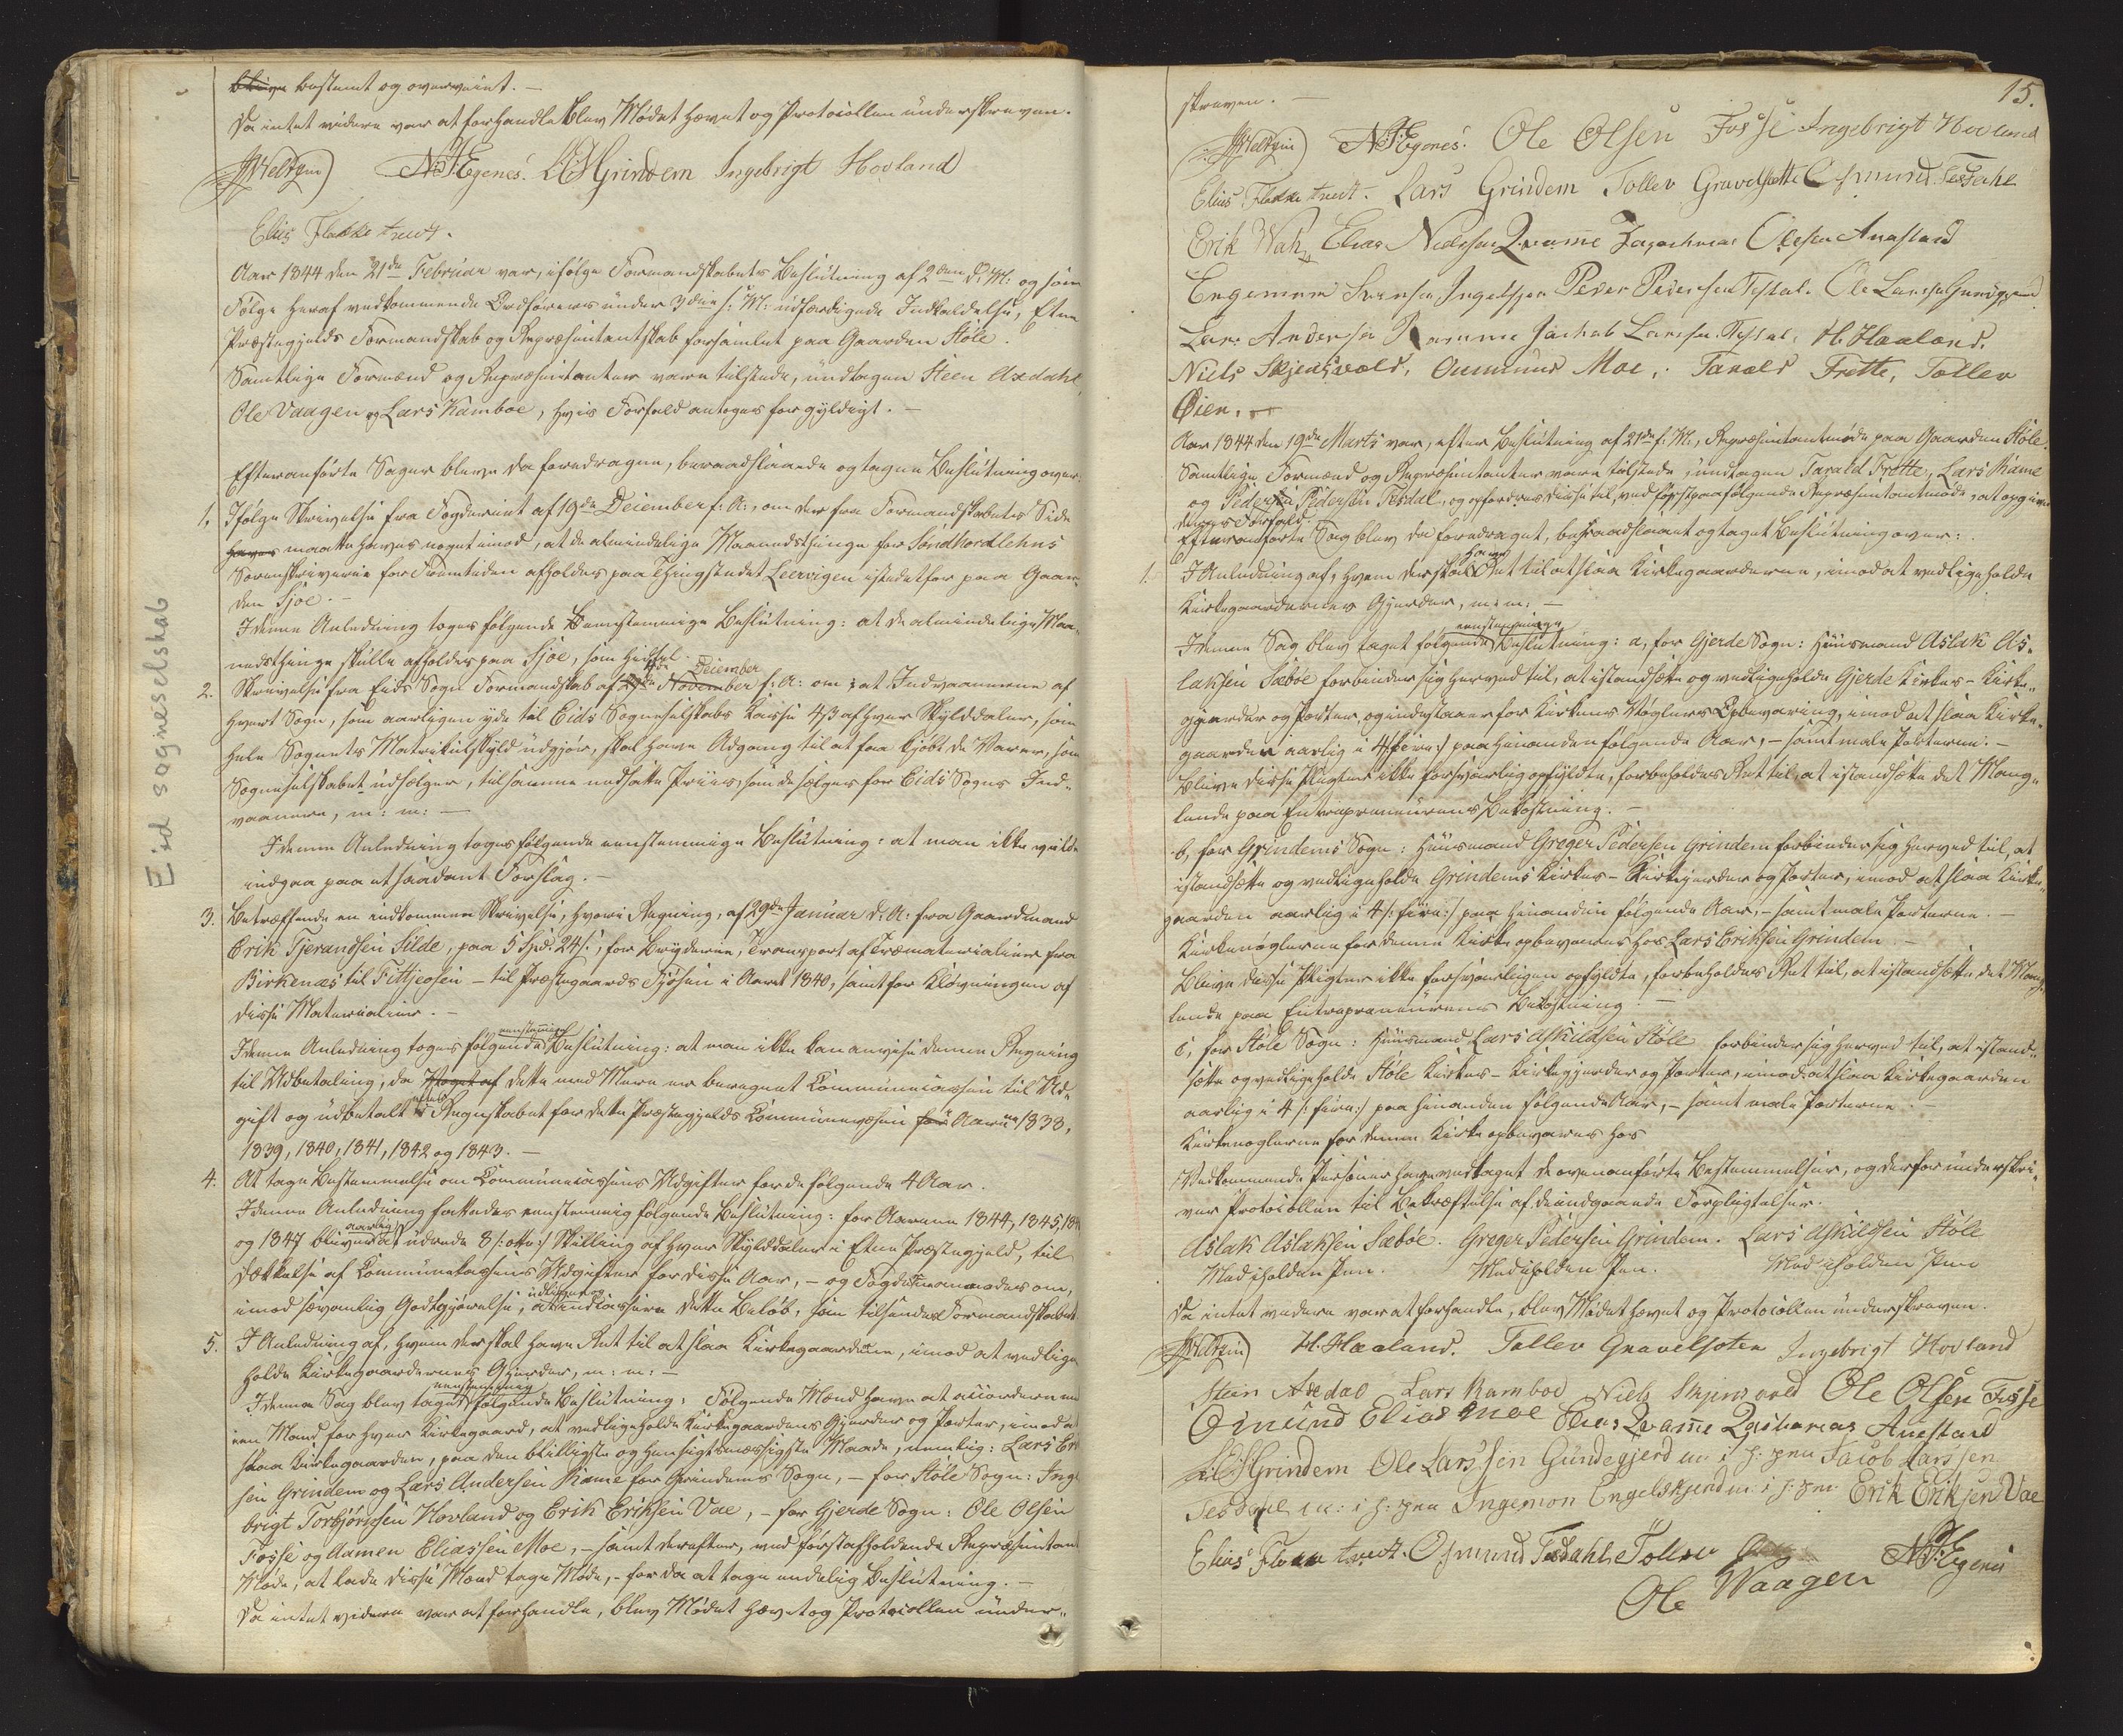 blive bestemt og overveiet. –
Da intet videre var at forhandle blev Mødet hævet og Protocollen underskreven.
N: J: Egenes. L E Grindem Ingebrigt Hovland
Elias Flakke tvedt.
Aar 1844 den 21de Februar var, ifølge Formandskabets Beslutning af 2den d: M: og som
Følge heraf vedkommende Ordførers under 3die s: M: udfærdigede Indkaldelse, Etne
Præstegjelds Formandskab og Repræsentantskab forsamlet paa Gaarden Støle.
Samtlige Formænd og Repræsentanter vare tilstede, undtagen Steen Axdahl,
Ole Vaagen og Lars Kamboe, hvis Forfald antoges for gyldigt. –
Efteranførte Sager bleve da foredragne, beraadslaaede og tagne Beslutning over:
1. Ifølge Skrivelse fra Fogderiet af 19de December f: A:, om der fra Formandskabets Side
haves maatte haves noget imod, at de almindelige Maanedsthinge for Søndhordlehns
Sorenskriverie for Fremtiden afholdes paa Thingstedet Leervigen istedetfor paa Gaar-
den Sjoe. –
I denne Anledning toges følgende eenstemmige Beslutning: at de almindelige Maa-
nedsthinge skulle afholdes paa Sjoe, som hidtil.
4de December
2. Skrivelse fra Eids Sogns Formandskab af 29de November f: A: om: at Indvaanerne af
hvert Sogn, som aarligen yde til Eids Sogneselskabs Kasse 4 ß af hver Skylddaler, som
hele Sognets Matrikulskyld udgjør, skal have Adgang til at faa kjøbt de Varer, som
Sogneselskabet udsælger, til samme nedsatte Priis, som de sælges for Eids Sogns Ind-
vaanere, m: m: –
I denne Anledning toges følgende eenstemmige Beslutning: at man ikke vilde
indgaa paa et saadant Forslag. –
Eid sogneselskab
3. Betræffende en indkommen Skrivelse, hvori Regning, af 29de Januar d: A: fra Gaardmand
Erik Tjerandsen Silde, paa 5 Spd. 24 ß, for Bryderie, Transport af Træmaterialier fra
Birkenæs til Fittjeosen – til Præstegaards Fjøsen i Aaret 1840, samt for Kløvningen af
disse Materialier. –
eenstemmig
I denne Anledning toges følgende Beslutning: at man ikke kan anvise denne Regning
til Udbetaling, da Noget af dette med Mere er beregnet Communecassen til Ud-
gift og udbetalt efter Regnskabet for dette Præstegjelds Communevæsen for Aarene 1838,
1839, 1840, 1841, 1842 og 1843. –
4. At tage Bestemmelse om Communecassens Udgifter for de følgende 4 Aar.
I denne Anledning fattedes eenstemmig følgende Beslutning: for Aarene 1844, 1845, 184
aarlig
og 1847 bliver at udrede 8 /: otte :/ Skilling af hver Skylddaler i Etne Præstegjeld, til
Dækkelse af Communekassens Udgifter for disse Aar, – og Fogderiet anmodes om,
udligne og
imod sædvanlig Godtgjørelse, at indcassere dette Beløb, som tilsendes Formandskabet.
5. I Anledning af, hvem der skal have Ret til at slaa Kirkegaardene, imod at vedlige
holde Kirkegaardernes Gjerder, m: m: –
eenstemmig
I denne Sag blev taget følgende Beslutning: Følgende Mænd have at accordere med
een Mand for hver Kirkegaard, at vedligeholde Kirkegaardens Gjerder og Porter, imod at
slaa Kirkegaarden, paa den billigste og hensigtsmæssigste Maade, nemlig: Lars Erik
sen Grindem og Lars Andersen Rame for Grindems Sogn, – for Støle Sogn: Inge
brigt Torbjørnsen Hovland og Erik Eriksen Vae, – for Gjerde Sogn: Ole Olsen
Fosse og Aamen Eliassen Moe, – samt derefter, ved førstafholdende Repræsentant
Møde, at lade disse Mænd tage Møde, – for da at tage endelig Beslutning. –
Da intet videre var at forhandle, blev Mødet hævet og Protocollen under-
15.
skreven. –
N: J: Egenes. Ole Olsen Fosse Ingebrigt Hovland
Elias Flakke tvedt. Lars Grindem Tollev Gravelsætte Osmund Tesdahl
Erik Wah Elias Nielsen Qvame Zacharias Olsen Anestad
Engemun Svensen Ingelsgjer Peder Pedersen Tesdal. Ole Larsen Gundegjerd
Lars Andersen Ramme Jachob Larsen Tesdal, H. Haaland.
Niels Skjensvold, Aummund Moe, Tarald Frette, Tollev
Øien.
Aar 1844 den 19de Marts var, efter Beslutning af 21de f: M:, Repræsentantmøde paa Gaarden Støle.
Samtlige Formænd og Repræsentanter vare tilstede, undtagen Tarald Frette, Lars Rame
og Peder Pedersen Tesdal, og opfordres disse til, ved førstpaafølgende Repræsentantmøde, at opgive
deres Forfald.
Efteranførte Sag blev da foredraget, beraadslaaet og taget Beslutning over:
have
1. I Anledning af, hvem der skal Ret til at slaa Kirkegaardene, imod at vedligeholde
Kirkegaardernes Gjerder, m: m: –
eenstemmige
I denne Sag blev taget følgende Beslutning: a, for Gjerde Sogn: Huusmand Aslak As-
laksen Sæbøe forbinder sig herved til, at istandsætte og vedligeholde Gjerde Kirkes – Kirke-
gjerder og Porter, og indestaaer for Kirkens Nøglers Opbevaring, imod at slaa Kirke-
gaarden aarlig i 4 /: fire :/ paa hinanden følgende Aar, – samt male Porterne. –
Blive disse Pligter ikke forsvarlig opfyldte, forbeholdes Ret til, at istandsætte det Mang-
lende paa Entrepreneurens Bekostning. –
b, for Grindems Sogn: Huusmand Greger Pedersen Grindem forbinder sig herved til, at
istandsætte og vedligeholde Grindems Kirkes – Kirkegjerder og Porter, imod at slaa Kirke-
gaarden aarlig i 4 /: fire :/ paa hinanden følgende Aar, – samt male Porterne. –
Kirkenøglerne for denne Kirke opbevares hos Lars Eriksen Grindem –
Blive disse Pligter ikke forsvarligen opfyldte, forbeholdes Ret til, at istandsætte det Mang-
lende paa Entrepreneurens Bekostning. –
c, for Støle Sogn: Huusmand Lars Askildsen Støle forbinder sig herved til, at istand-
sætte og vedligeholde Støle Kirkes – Kirkegjerder og Porter, imod at slaa Kirkegaarden
aarlig i 4 /: fire :/ paa hinanden følgende Aar, – samt male Porterne.
Kirkenøglerne for denne Kirke opbevares hos
Vedkommende Personer have vedtaget de ovenanførte Bestemmelser, og derfor underskri-
ver Protocollen til Bekræftelse af de indgaaede Forpligtelser.
Aslak Aslaksen Sæbøe. Greger Pedersen Grindem. Lars Askildsen Støle
Med iholden Pen. Med iholden Pen. Med iholden Pen
Da intet videre var at forhandle, blev Mødet hævet og Protocollen underskreven.
H. Haaland. Tollev Gravelsoten Ingebrigt Hovland
Stein Axdal Lars Kamboe Niels Skjensvold Ole Olsen Fosse
Omund Elias Moe Elias Qvame Zacharias Anestad
L E Grindem Ole Larssen Gundegjerd m: i h: pen Jacob Larssen
Tesdal m: i h: pen Ingemon Engelskjerd m: i h: pen Erik Eriksen Vae
Elias Flakke tvedt. Osmund Tesdahl. Tollev
Ole Waagen N: J: Egenes